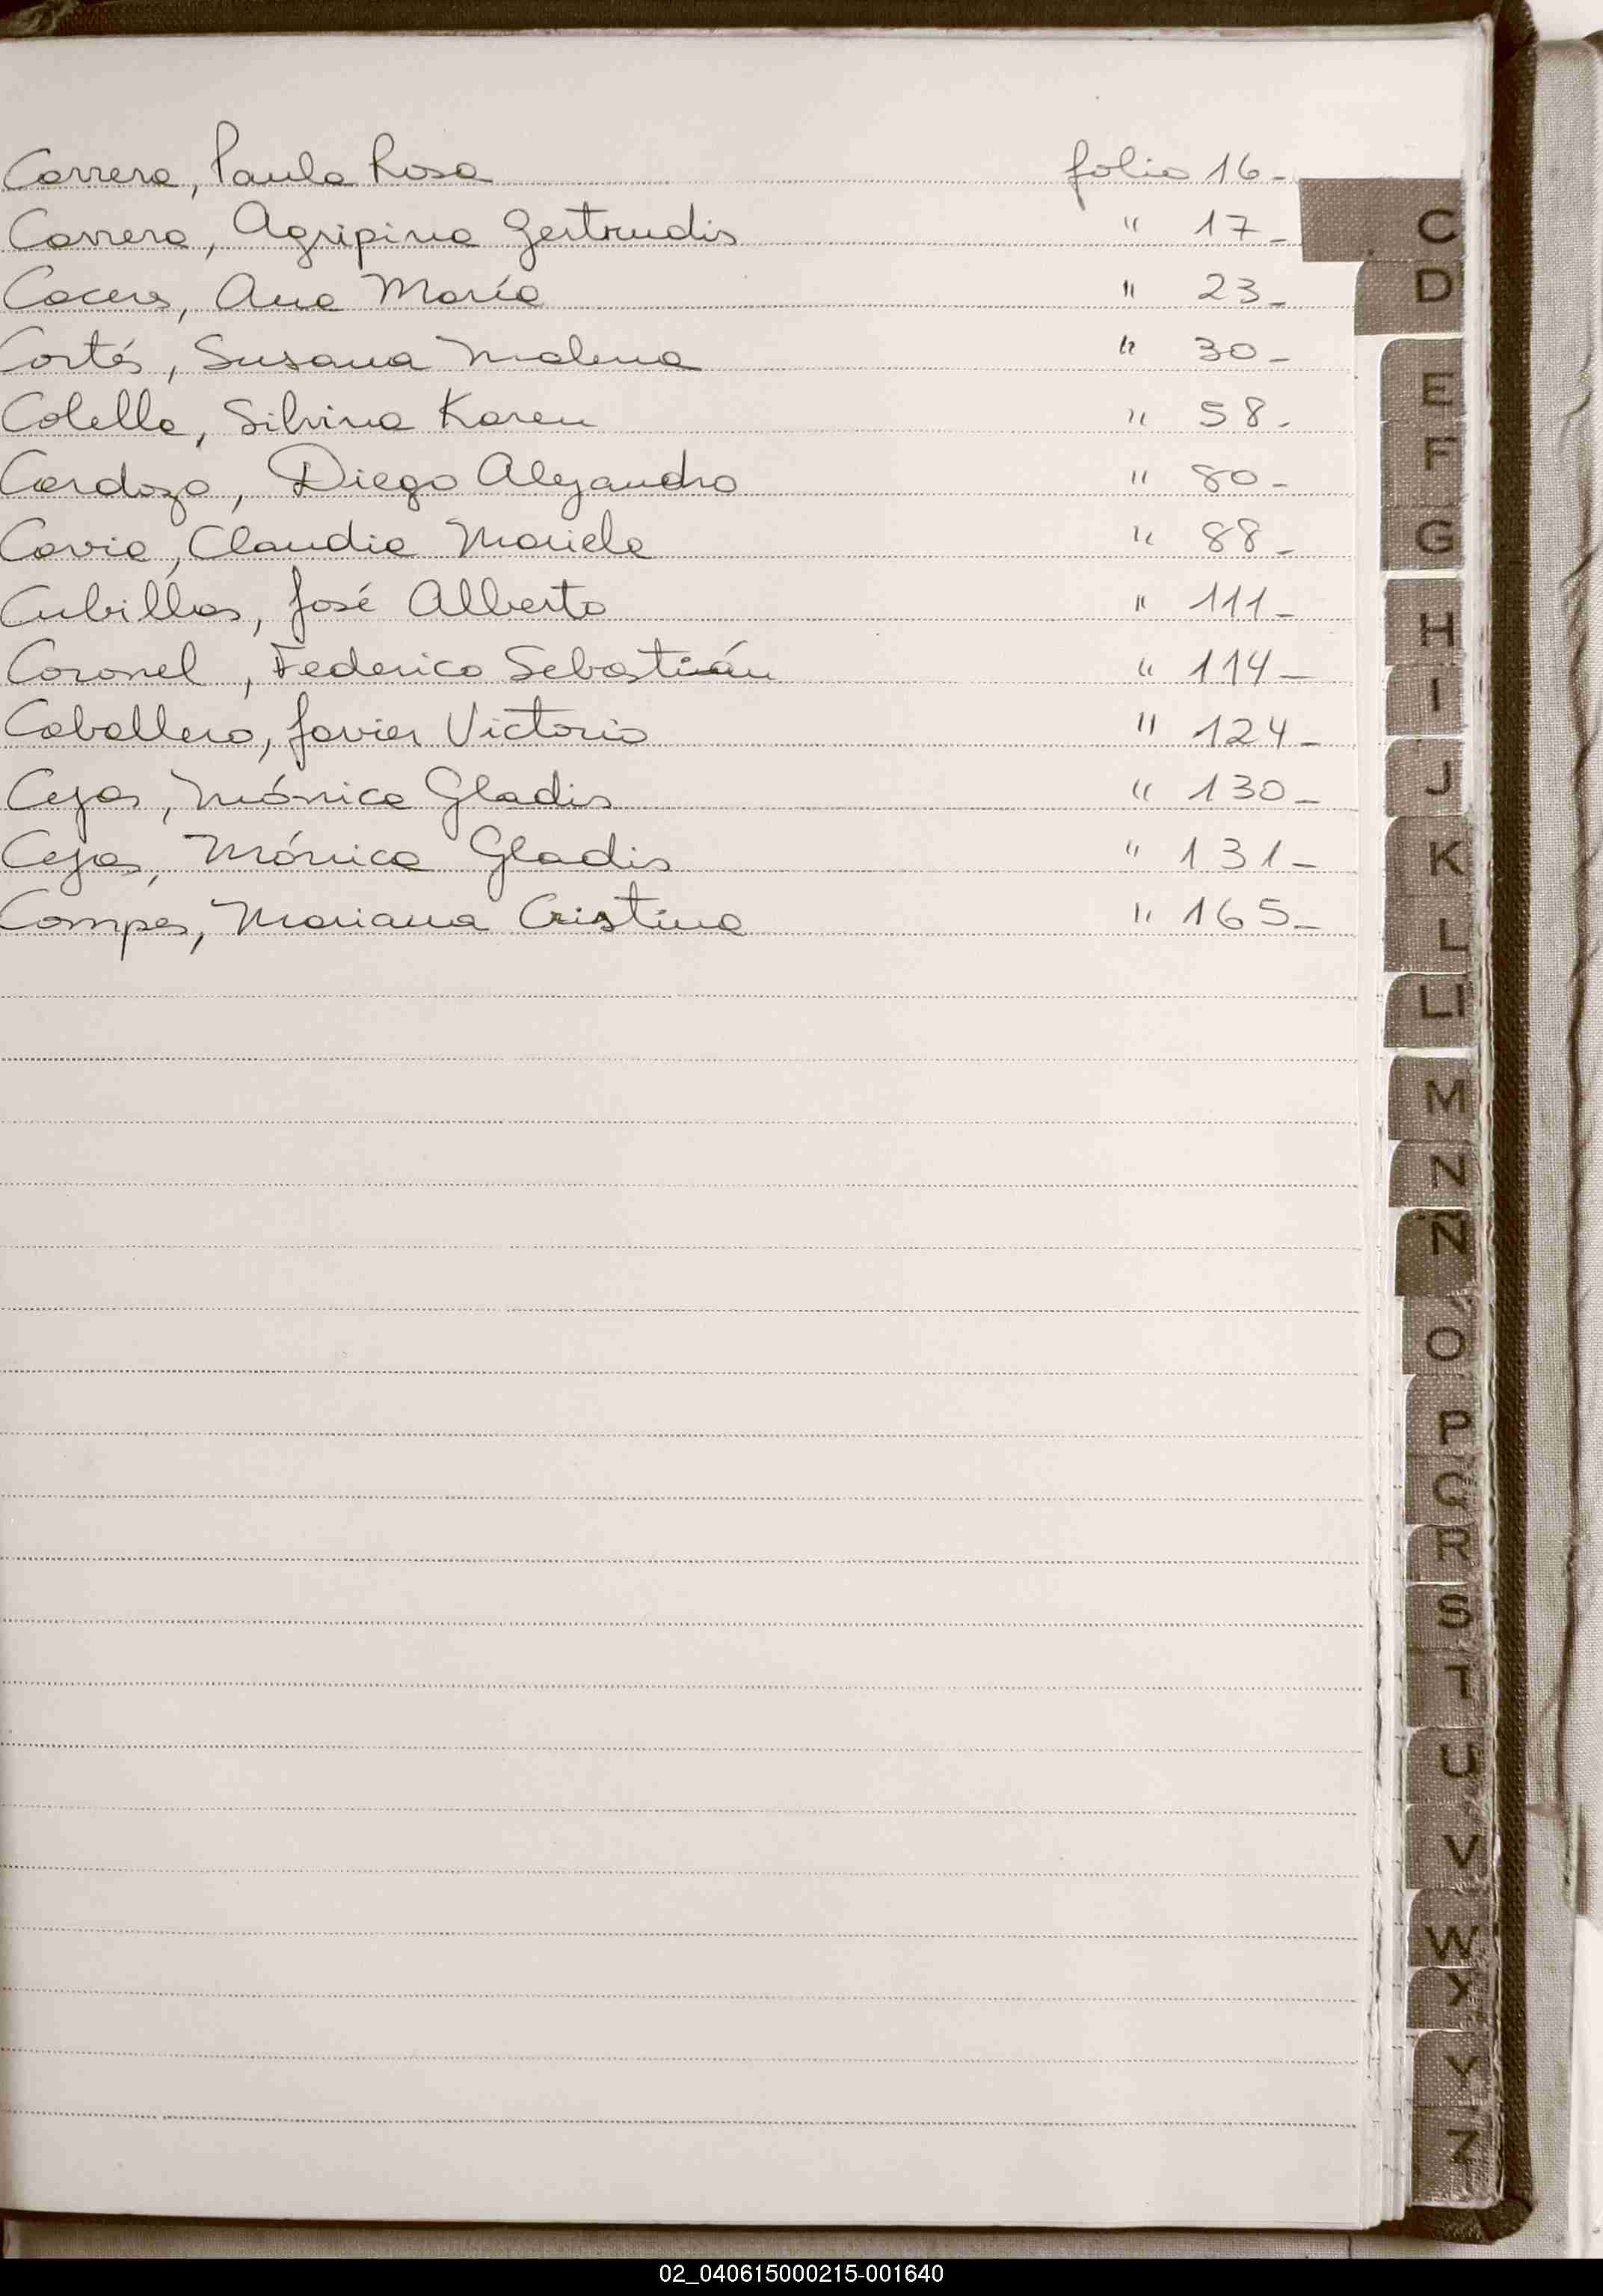 Carrera, Paula Rosa folio 16-
Carrera, Agripina Gertrudis " 17-
Caceres, Ana María " 23-
Cortés, Susana Malena " 30-
Colella, Silvina Karen " 58-
Cardozo, Diego Alejandro " 80-
Cavia, Claudia Mariela " 88-
Cubillas, José Alberto " 111-
Coronel, Federico Sebastián " 114-
Caballero, Javier Victorio " 124-
Cejas, Mónica Gladis " 130-
Cejas, Mónica Gladis " 131-
Campes, Mariana Cristina " 165-
C
D
E
F
G
H
I
J
K
L
Ll
M
N
Ñ
O
P
Q
R
S
T
U
V
W
X
Y
Z
02_040615000215-001640